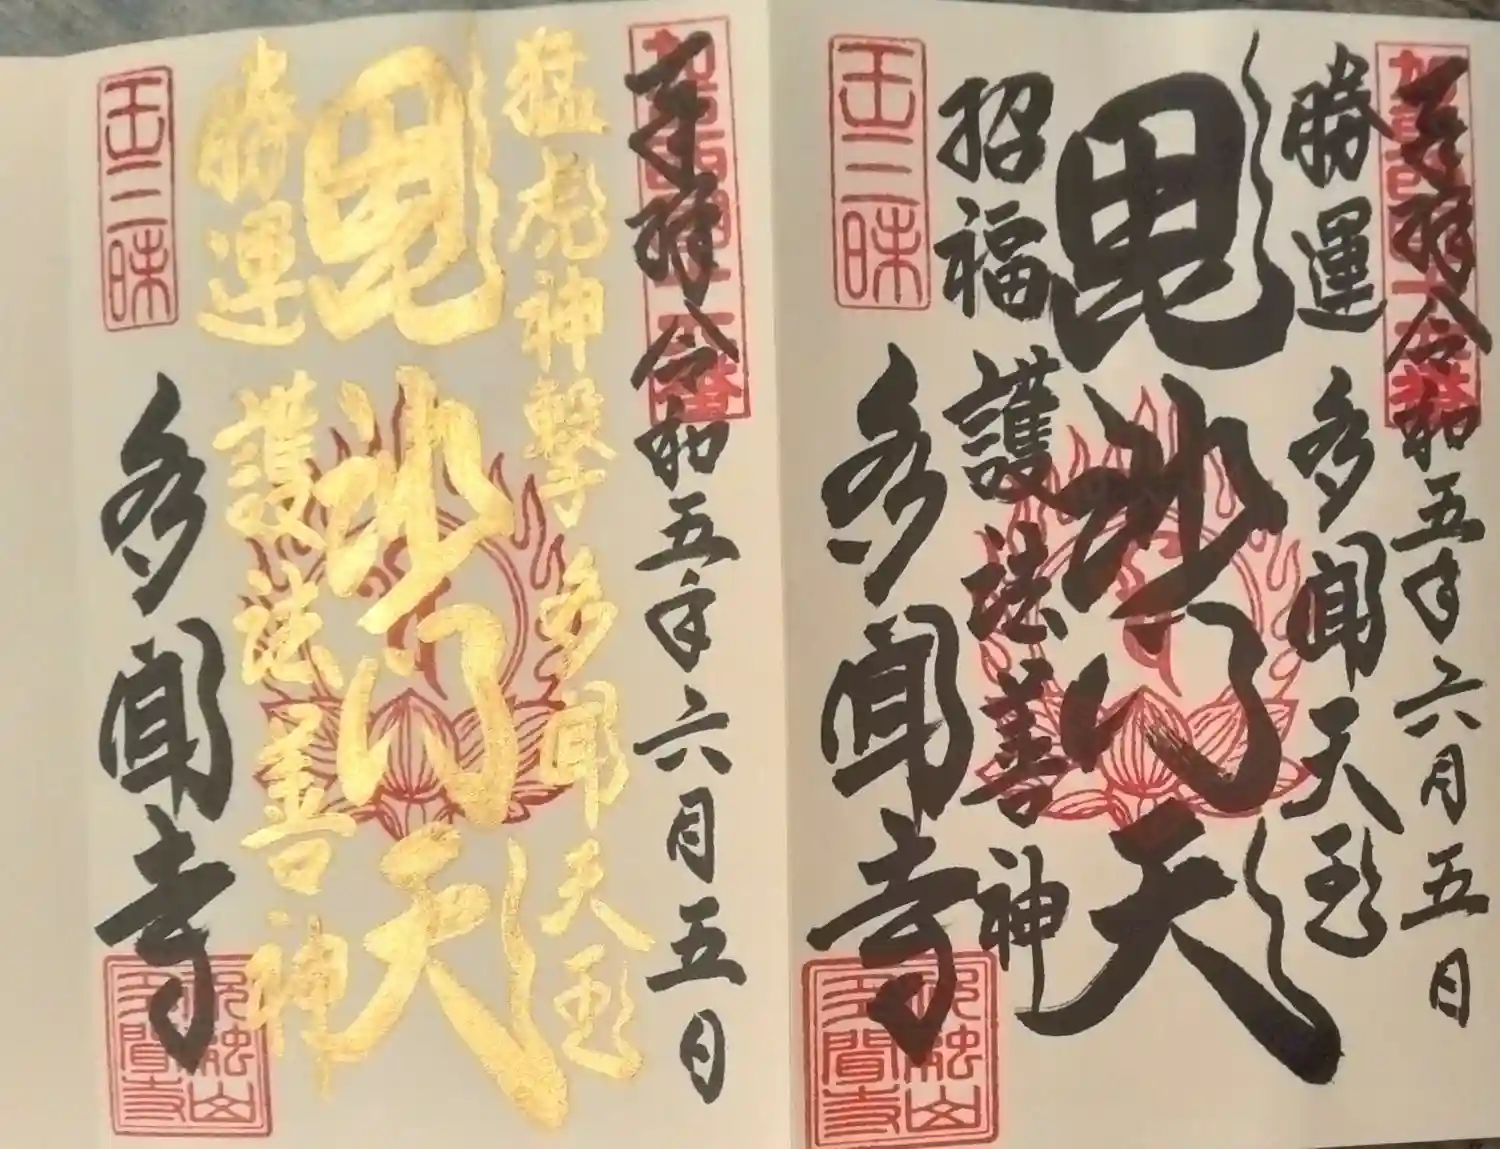 奉拝 令和五年六月五日
勝運 多聞天王
毘沙門天
招福 護法善神
王三昧
多聞寺
祝融山
多聞寺
奉拝 令和五年六月五日
猛虎神撃 多聞天王
毘沙門天
勝運 護法善神
王三昧
多聞寺
祝融山
多聞寺